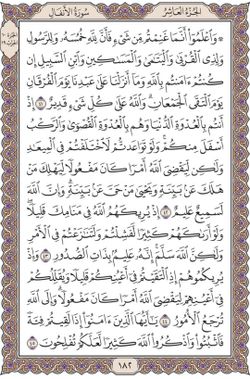 الجزء العاشر
سورة الأنفال
۞ وَٱعْلَمُوٓا۟ أَنَّمَا غَنِمْتُم مِّن شَىْءٍ فَأَنَّ لِلَّهِ خُمُسَهُۥ وَلِلرَّسُولِ
وَلِذِى ٱلْقُرْبَىٰ وَٱلْيَتَـٰمَىٰ وَٱلْمَسَـٰكِينِ وَٱبْنِ ٱلسَّبِيلِ إِن
كُنتُمْ ءَامَنتُم بِٱللَّهِ وَمَآ أَنزَلْنَا عَلَىٰ عَبْدِنَا يَوْمَ ٱلْفُرْقَانِ
يَوْمَ ٱلْتَقَى ٱلْجَمْعَانِ ۗ وَٱللَّهُ عَلَىٰ كُلِّ شَىْءٍ قَدِيرٌ ٤١
إِذْ أَنتُم بِٱلْعُدْوَةِ ٱلدُّنْيَا وَهُم بِٱلْعُدْوَةِ ٱلْقُصْوَىٰ وَٱلرَّكْبُ
أَسْفَلَ مِنكُمْ ۚ وَلَوْ تَوَاعَدتُّمْ لَٱخْتَلَفْتُمْ فِى ٱلْمِيعَـٰدِ ۙ
وَلَـٰكِن لِّيَقْضِىَ ٱللَّهُ أَمْرًا كَانَ مَفْعُولًا لِّيَهْلِكَ مَنْ
هَلَكَ عَنۢ بَيِّنَةٍ وَيَحْيَىٰ مَنْ حَىَّ عَنۢ بَيِّنَةٍ ۗ وَإِنَّ ٱللَّهَ
لَسَمِيعٌ عَلِيمٌ ٤٢ إِذْ يُرِيكَهُمُ ٱللَّهُ فِى مَنَامِكَ قَلِيلًا ۖ
وَلَوْ أَرَىٰكَهُمْ كَثِيرًا لَّفَشِلْتُمْ وَلَتَنَـٰزَعْتُمْ فِى ٱلْأَمْرِ
وَلَـٰكِنَّ ٱللَّهَ سَلَّمَ ۗ إِنَّهُۥ عَلِيمٌۢ بِذَاتِ ٱلصُّدُورِ ٤٣ وَإِذْ
يُرِيكُمُوهُمْ إِذِ ٱلْتَقَيْتُمْ فِىٓ أَعْيُنِكُمْ قَلِيلًا وَيُقَلِّلُكُمْ
فِىٓ أَعْيُنِهِمْ لِيَقْضِىَ ٱللَّهُ أَمْرًا كَانَ مَفْعُولًا ۗ وَإِلَى ٱللَّهِ
تُرْجَعُ ٱلْأُمُورُ ٤٤ يَـٰٓأَيُّهَا ٱلَّذِينَ ءَامَنُوٓا۟ إِذَا لَقِيتُمْ فِئَةً
فَٱثْبُتُوا۟ وَٱذْكُرُوا۟ ٱللَّهَ كَثِيرًا لَّعَلَّكُمْ تُفْلِحُونَ ٤٥
١٨٢